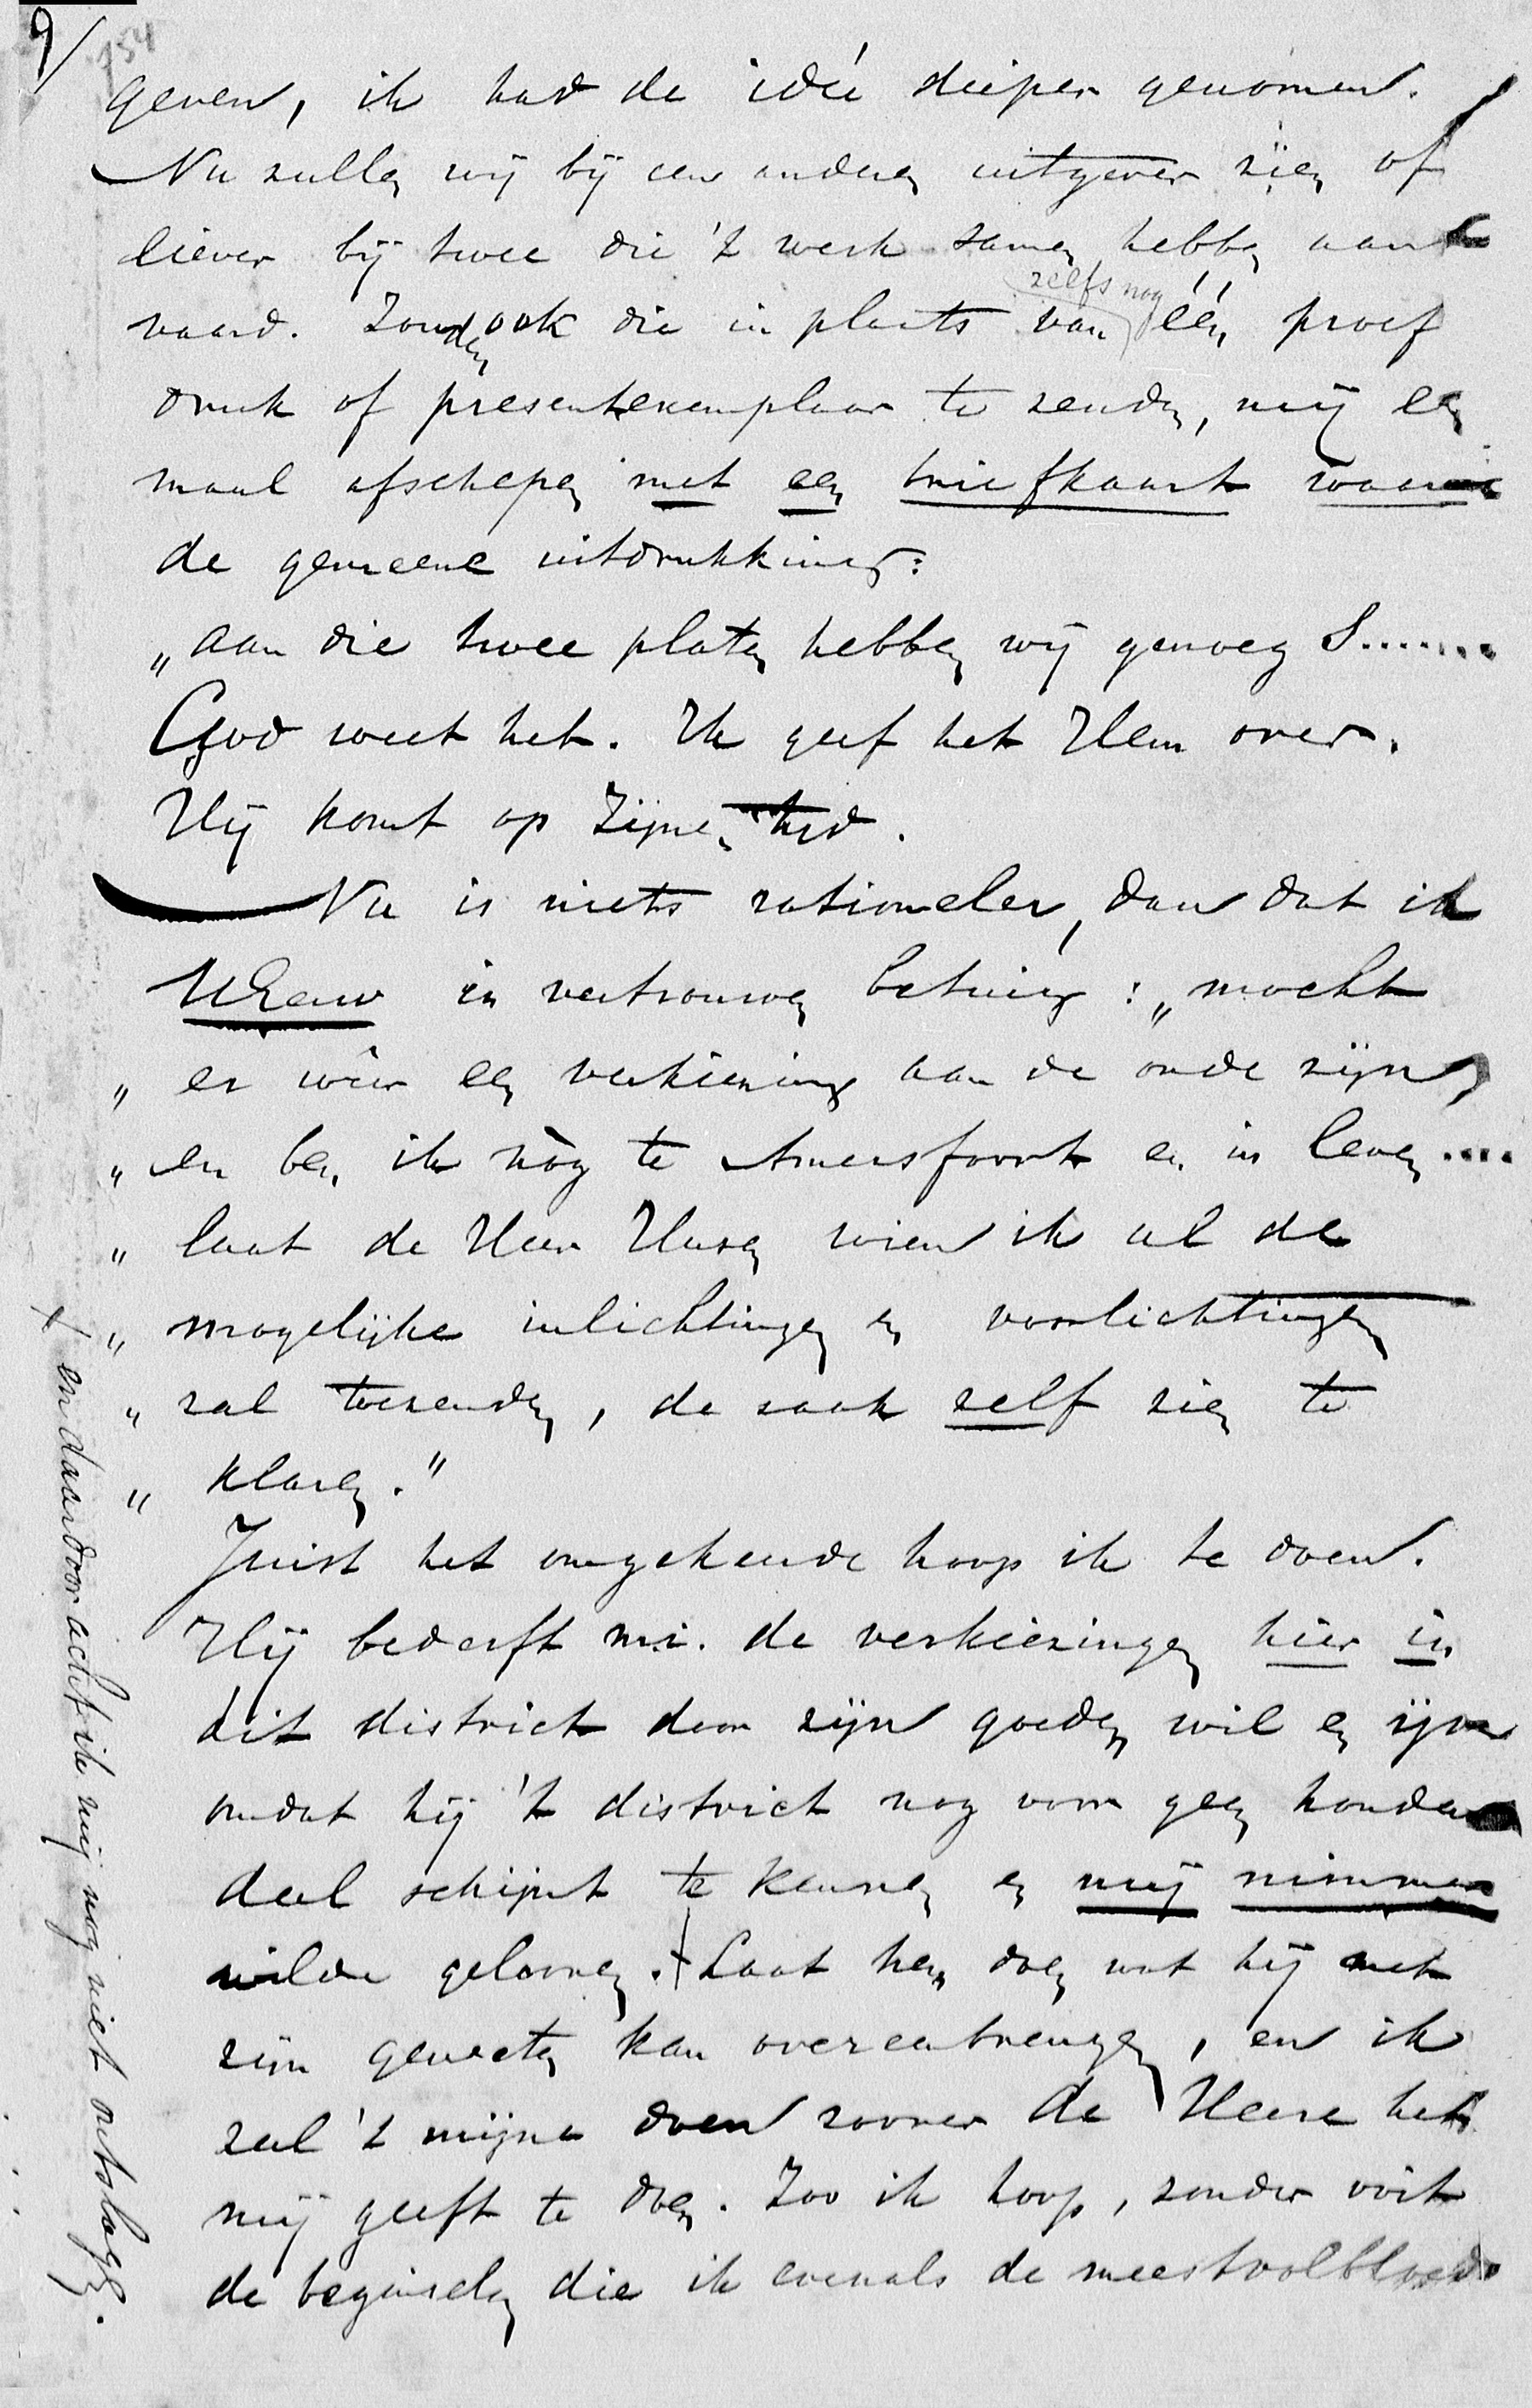 9/
754
geven, ik had de idée dieper genomen.
Nu zullen wij bij een anderen uitgever zien of
liever bij twee die 't werk samen hebben aan
vaard. Zouden ook die in plaats van zelfs nog één proef
druk of presentexemplaar te zenden, mij een
maal afschepen met een briefkaart waarin
de gemeene uitdrukking:
„aan die twee platen hebben wij genoeg S.......
God weet het. Ik geef het Hem over.
Hij komt op Zijnen tijd.
Nu is niets rationeler, dan dat ik
UEerw in vertrouwen betuig: „mocht
„ er wéér een verkiezing aan de orde zijn,
„ en ben ik nòg te Amersfoort en in leven ....
„ laat de Heer Husen wien ik al de
„ mogelijke inlichtingen en voorlichtingen
„ zal toezenden, de zaak zelf zien te
„ klaren."
Juist het omgekeerde hoop ik te doen.
Hij bederft m.i. de verkiezingen hier in
dit district door zijn goeden wil en ijver
omdat hij 't district nog voor geen honderd
deel schijnt te kennen en mij nimmer
wilde gelooven. + Laat hem doen wat hij met
zijn geweten kan overeenbrengen, en ik
zal 't mijne doen zoover de Heere het
mij geeft te doen. Zoo ik hoop, zonder ooit
de beginselen die ik evenals de meestvolbloed
+ en daardoor acht ik mij nog niet ontslagen.